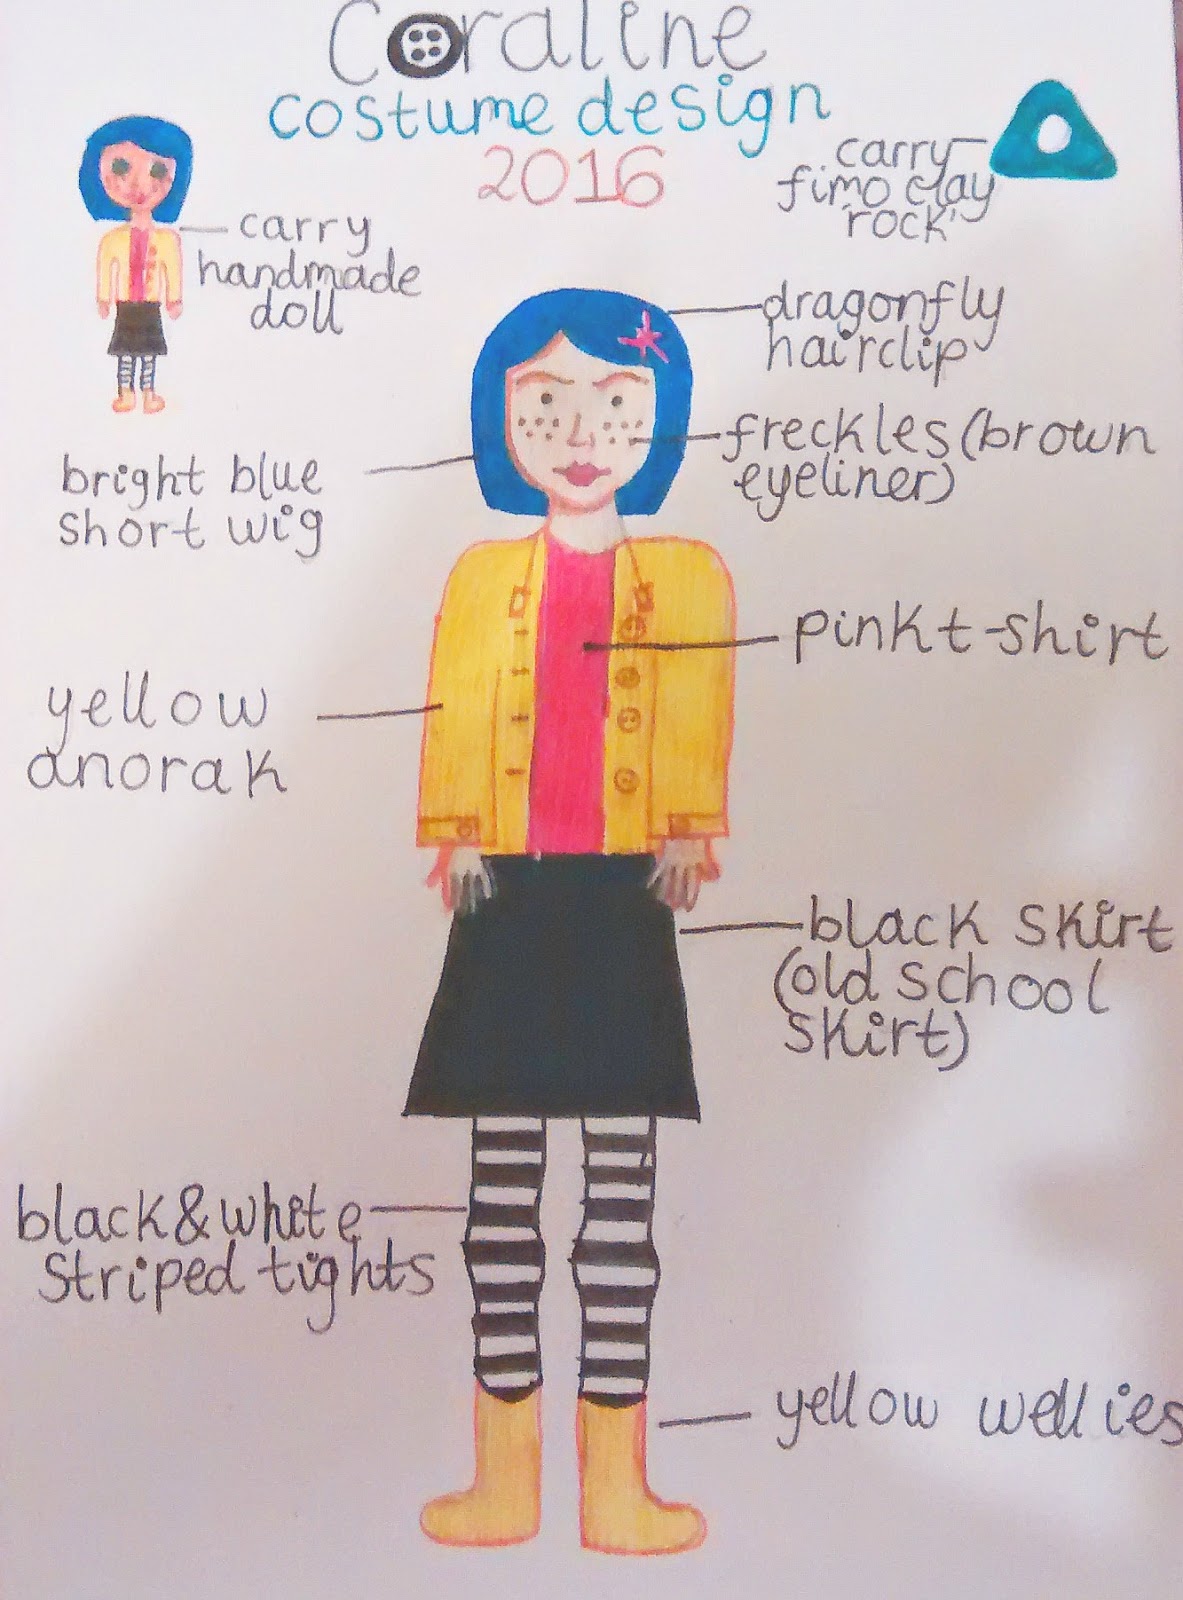 Coraline
costume design
2016
carry
fimo clay
'rock'
carry
handmade
doll
dragonfly
hairclip
freckles (brown
eyeliner)
bright blue
short wig
pink t-shirt
yellow
anorak
black skirt
(old school
skirt)
black & white
striped tights
yellow wellies